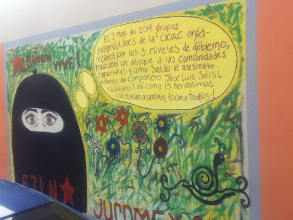 El 2 mayo de 2014 grupos
paramilitares de la CIOAC orga-
nizados por los 3 niveles de gobierno,
realizaron un ataque a las Comunidades
zapatistas y como saldo el asesinato
del compañero José Luis Solís L
(Galeano) así como 15 heridos mas
si tocan a un@, tocan a Tod@s!
VIVE!
EZLN